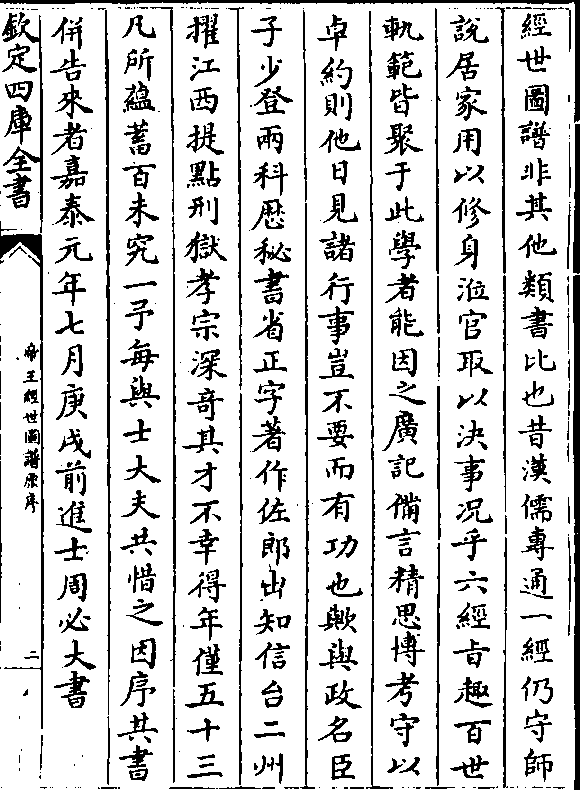 經世圖譜非其他類書比也昔漢儒專通一經仍守師
說居家用以修身涖官取以決事况乎六經旨趣百世
軌範皆聚于此學者能因之廣記備言精思博考守以
卓約則他日見諸行事豈不要而有功也歟與政名臣
子少登兩科歴秘書省正字著作佐郎出知信台二州
擢江西提點刑獄孝宗深竒其才不幸得年僅五十三
凡所藴蓄百未究一予每與士大夫共惜之因序其書
併告來者嘉泰元年七月庚戌前進士周必大書
欽定四庫全書
帝王經世圖譜原序
二